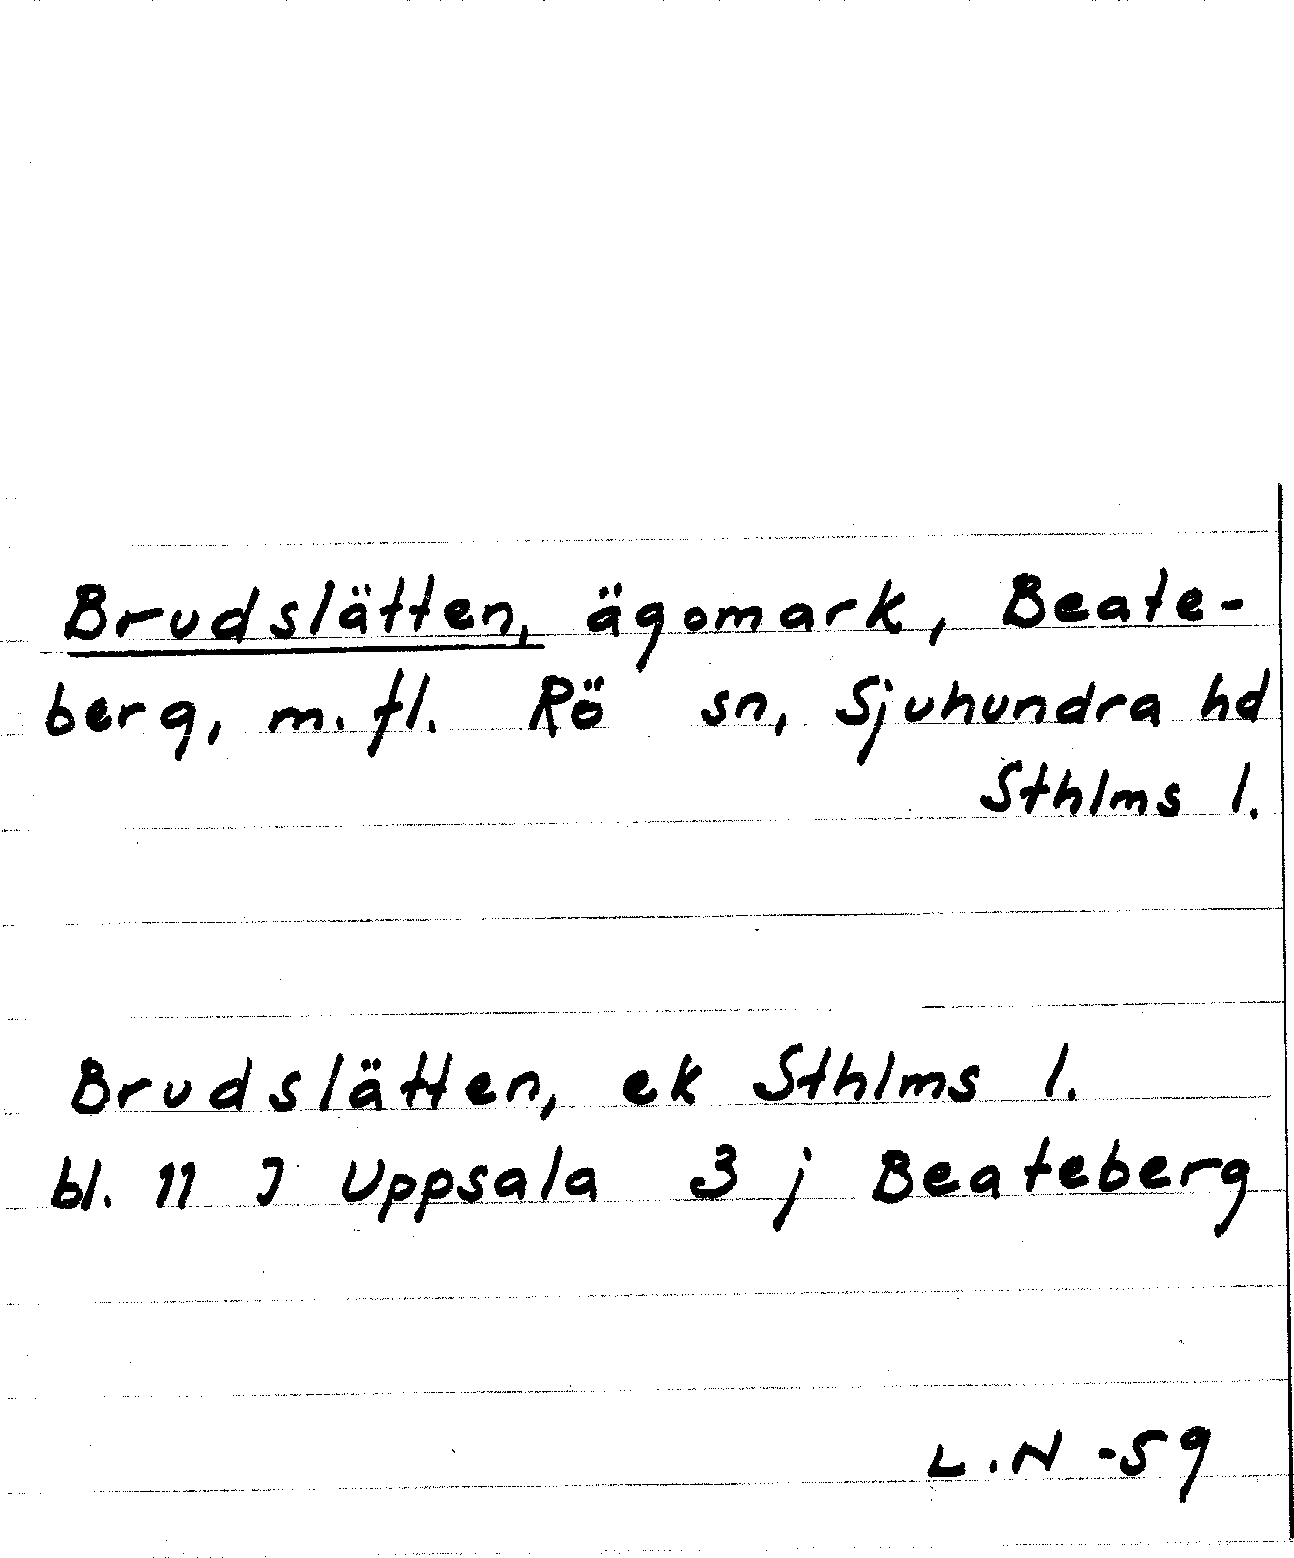 Brudslätten, ägomark, Beate-
berg, m.fl. Rö sn, Sjuhundra hd
Sthlms l.
Brudslätten, ek Sthlms l.
bl. 11 J Uppsala 3 j Beateberg
L.N -59